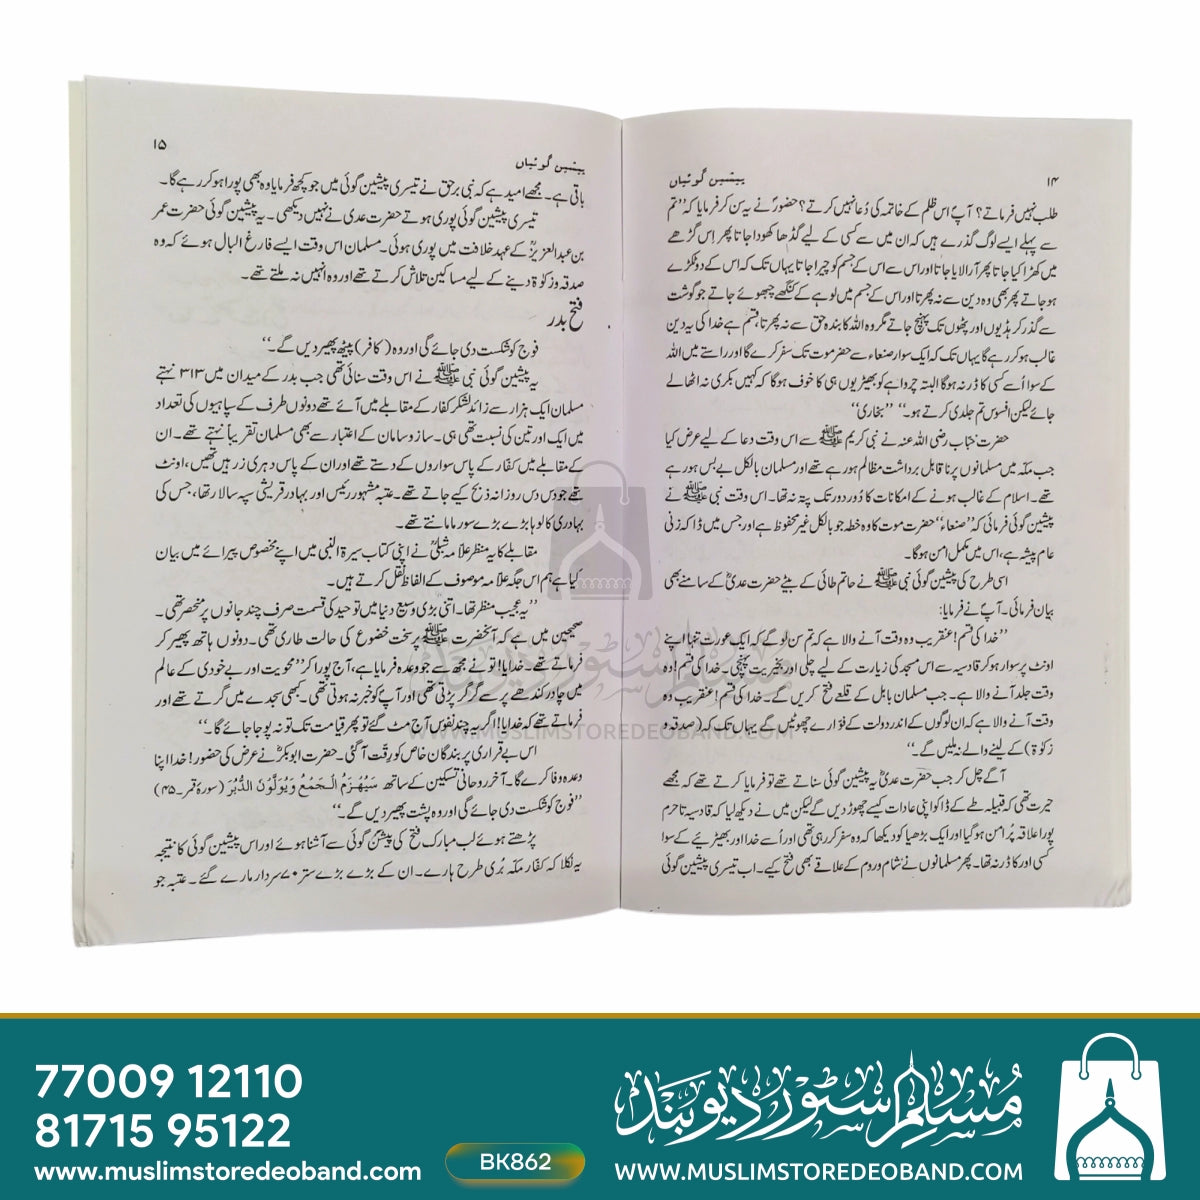 ۱۴
پیشین گوئیاں
طلب نہیں فرماتے؟ آپؐ اس ظلم کے خاتمہ کی دُعا نہیں کرتے؟ حضورؐ نے یہ سن کر فرمایا کہ ’’تم
سے پہلے ایسے لوگ گذرے ہیں کہ ان میں سے کسی کے لیے گڈھا کھودا جاتا پھر اِس گڑھے
میں کھڑا کیا جاتا پھر آرا لایا جاتا اور اس سے اس کے جسم کو چیرا جاتا یہاں تک کہ اس کے دو ٹکڑے
ہو جاتے پھر بھی وہ دین سے نہ پھرتا اور اس کے جسم میں لوہے کے کنگھے چھوئے جاتے جو گوشت
سے گذر کر ہڈیوں اور پٹھوں تک پہنچ جاتے مگر وہ اللہ کا بندہ حق سے نہ پھرتا، قسم ہے خدا کی یہ دین
غالب ہو کر رہے گا یہاں تک کہ ایک سوار صنعاء سے حضر موت تک سفر کرے گا اور راستے میں اللہ
کے سوا اُسے کسی کا ڈر نہ ہوگا البتہ چرواہے کو بھیڑیوں ہی کا خوف ہوگا کہ کہیں بکری نہ اٹھا لے
جائے لیکن افسوس تم جلدی کرتے ہو۔‘‘ ’’بخاری‘‘
حضرت خبّاب رضی اللہ عنہ نے نبی کریم ﷺ سے اس وقت دعا کے لیے عرض کیا
جب مکّہ میں مسلمانوں پر ناقابل برداشت مظالم ہو رہے تھے اور مسلمان بالکل بے بس ہو رہے
تھے۔ اسلام کے غالب ہونے کے امکانات کا دُور دور تک پتہ نہ تھا۔ اس وقت نبی ﷺ نے
پیشین گوئی فرمائی کہ ’’صنعاء‘‘ حضر موت کا وہ خطہ جو بالکل غیر محفوظ ہے اور جس میں ڈاکہ زنی
عام پیشہ ہے، اس میں مکمل امن ہوگا۔
اسی طرح کی پیشین گوئی نبی ﷺ نے حاتم طائی کے بیٹے حضرت عدیؓ کے سامنے بھی
بیان فرمائی۔ آپؐ نے فرمایا:
’’خدا کی قسم! عنقریب وہ وقت آنے والا ہے کہ تم سن لو گے کہ ایک عورت تنہا اپنے
اونٹ پر سوار ہو کر قادسیہ سے اس مسجد کی زیارت کے لیے چلی اور بخیریت پہنچی۔ خدا کی قسم! وہ
وقت جلد آنے والا ہے۔ جب مسلمان بابل کے قلعے فتح کریں گے۔ خدا کی قسم! عنقریب وہ
وقت آنے والا ہے کہ ان لوگوں کے اندر دولت کے فوّارے چھوٹیں گے یہاں تک کہ (صدقہ و
زکوٰۃ) کے لینے والے نہ ملیں گے۔‘‘
آگے چل کر جب حضرت عدیؓ یہ پیشین گوئی سناتے تھے تو فرمایا کرتے تھے کہ مجھے
حیرت تھی کہ قبیلہ طے کے ڈاکو اپنی عادات کیسے چھوڑ دیں گے لیکن میں نے دیکھ لیا کہ قادسیہ تا حرم
پورا علاقہ پُر امن ہو گیا اور ایک بڑھیا کو دیکھا کہ وہ سفر کر رہی تھی اور اُسے خدا اور بھیڑیئے کے سوا
کسی اور کا ڈر نہ تھا۔ پھر مسلمانوں نے شام و روم کے علاقے بھی فتح کیے۔ اب تیسری پیشین گوئی
پیشین گوئیاں
۱۵
باقی ہے۔ مجھے امید ہے کہ نبی برحق نے تیسری پیشین گوئی میں جو کچھ فرمایا وہ بھی پورا ہو کر رہے گا۔
تیسری پیشین گوئی پوری ہوتے حضرت عدی نے نہیں دیکھی۔ یہ پیشین گوئی حضرت عمر
بن عبدالعزیزؒ کے عہد خلافت میں پوری ہوئی۔ مسلمان اس وقت ایسے فارغ البال ہوئے کہ وہ
صدقہ و زکوٰۃ دینے کے لیے مساکین تلاش کرتے تھے اور وہ انہیں نہ ملتے تھے۔
فتح بدر
فوج کو شکست دی جائے گی اور وہ (کافر) پیٹھ پھیر دیں گے۔‘‘
یہ پیشین گوئی نبی ﷺ نے اس وقت سنائی تھی جب بدر کے میدان میں ۳۱۳ نہتے
مسلمان ایک ہزار سے زائد لشکر کفار کے مقابلے میں آئے تھے دونوں طرف کے سپاہیوں کی تعداد
میں ایک اور تین کی نسبت تھی ہی۔ ساز و سامان کے اعتبار سے بھی مسلمان تقریباً نہتے تھے۔ ان
کے مقابلے میں کفار کے پاس سواروں کے دستے تھے اور ان کے پاس دہری زرہیں تھیں، اونٹ
تھے جو دس دس روزانہ ذبح کیے جاتے تھے۔ عتبہ مشہور رئیس اور بہادر قریشی سپہ سالار تھا، جس کی
بہادری کا لوہا بڑے بڑے سورما مانتے تھے۔
مقابلے کا یہ منظر علاّمہ شبلیؒ نے اپنی کتاب سیرۃ النبی میں اپنے مخصوص پیرائے میں بیان
کیا ہے ہم اس جگہ علاّمہ موصوف کے الفاظ نقل کرتے ہیں۔
’’یہ عجیب منظر تھا۔ اتنی بڑی وسیع دنیا میں توحید کی قسمت صرف چند جانوں پر منحصر تھی۔
صحیحین میں ہے کہ آنحضرت ﷺ پر سخت خضوع کی حالت طاری تھی۔ دونوں ہاتھ پھیر کر
فرماتے تھے۔ خدایا! تو نے مجھ سے جو وعدہ فرمایا ہے، آج پورا کر‘‘ محویت اور بے خودی کے عالم
میں چادر کندھے پر سے گر گر پڑتی تھی اور آپؐ کو خبر نہ ہوتی تھی۔ کبھی سجدے میں گرتے تھے اور
فرماتے تھے کہ خدایا! اگر یہ چند نفوس آج مٹ گئے تو پھر قیامت تک تو نہ پوجا جائے گا۔‘‘
اس بے قراری پر بندگان خاص کو رقت آگئی۔ حضرت ابوبکرؓ نے عرض کی حضور! خدا اپنا
وعدہ وفا کرے گا۔ آخر روحانی تسکین کے ساتھ سَیُهْزَمُ الْجَمْعُ وَیُوَلُّوْنَ الدُّبُرَ (سورۂ قمر۔۴۵)
’’فوج کو شکست دی جائے گی اور وہ پشت پھیر دیں گے۔‘‘
پڑھتے ہوئے لب مبارک فتح کی پیشن گوئی سے آشنا ہوئے اور اس پیشین گوئی کا نتیجہ
یہ نکلا کہ کفار مکّہ بُری طرح ہارے۔ ان کے بڑے بڑے ستّر ۷۰ سردار مارے گئے۔ عتبہ جو
مسلم سٹور دیوبند
WWW.MUSLIMSTOREDEOBAND.COM
77009 12110
81715 95122
www.muslimstoredeoband.com
BK862
مسلم سٹور دیوبند
WWW.MUSLIMSTOREDEOBAND.COM